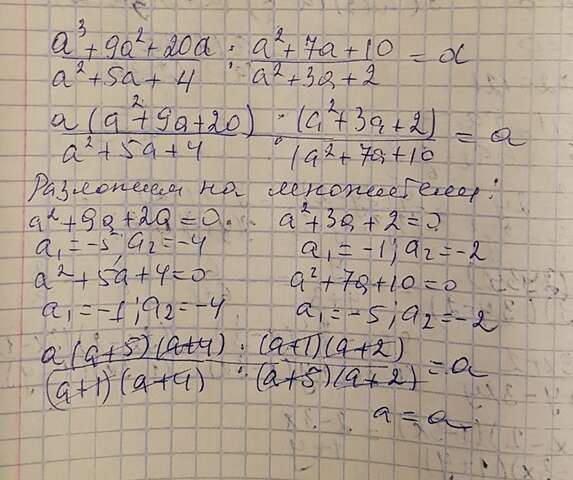 a³+9a²+20a / a²+5a+4 : a²+7a+10 / a²+3a+2 = a
a(a²+9a+20) / a²+5a+4 · (a²+3a+2) / (a²+7a+10 = a
Разложим на множители:
a²+9a+20=0. a²+3a+2=0
a₁=-5; a₂=-4 a₁=-1; a₂=-2
a²+5a+4=0 a²+7a+10=0
a₁=-1; a₂=-4 a₁=-5; a₂=-2
a(a+5)(a+4) / (a+1)(a+4) · (a+1)(a+2) / (a+5)(a+2) = a
a=a